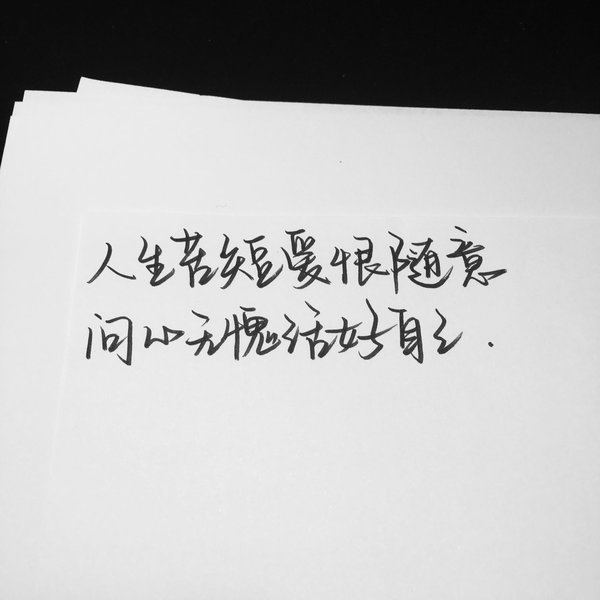 人生苦短爱恨随意
问心无愧活好自己.